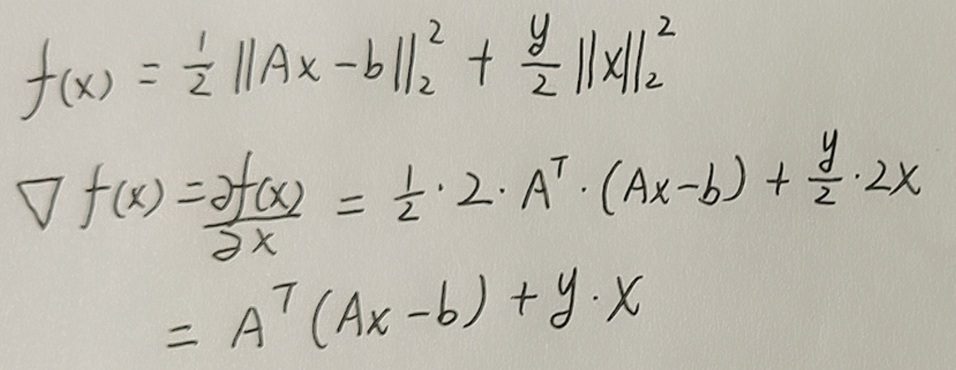 f(x) = 1/2 ||Ax - b||₂² + y/2 ||x||₂²
∇ f(x) = ∂f(x)/∂x = 1/2 · 2 · Aᵀ · (Ax - b) + y/2 · 2x
= Aᵀ (Ax - b) + y · x